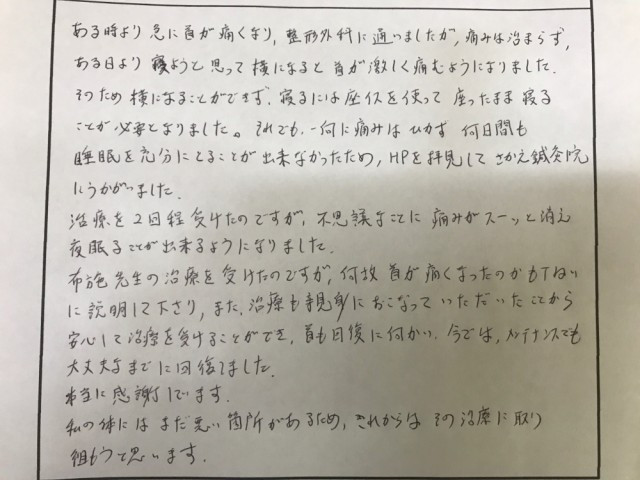 ある時より急に首が痛くなり,整形外科に通いましたが,痛みは治まらず,
ある日より寝ようと思って横になると首が激しく痛むようになりました.
そのため横になることができず.寝るには座イスを使って座ったまま寝る
ことが必要となりました。それでも.一向に痛みはひかず何日間も
睡眠を充分にとることが出来なかったため,HPを拝見してさかえ鍼灸院
にうかがいました.
治療を2回程受けたのですが,不思議なことに痛みがスーッと消え
夜眠ることが出来るようになりました.
布施先生の治療を受けたのですが,何故首が痛くなったのかもていねい
に説明して下さり,また,治療も親身におこなっていただいたことから
安心して治療を受けることができ,首も日後に何かい.今では,メンテナンスでも
大丈夫なまでに回復しました.
本当に感謝しています.
私の体にはまだ悪い箇所があるため,これからはその治療に取り
組もうと思います.